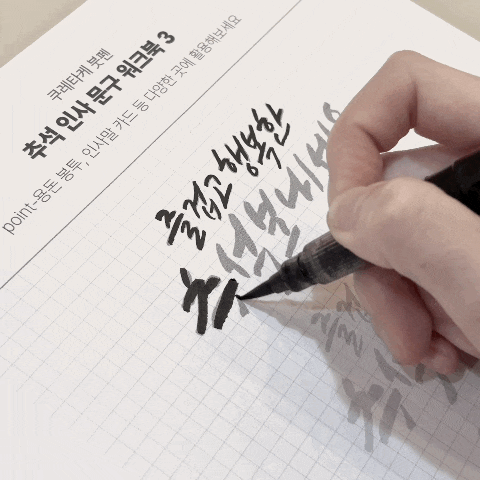 쿠레타케 붓펜
추석 인사 문구 워크북 3
point-용돈 봉투, 인사말 카드 등 다양한 곳에 활용해보세요
즐겁고 행복한
추석 보내세요